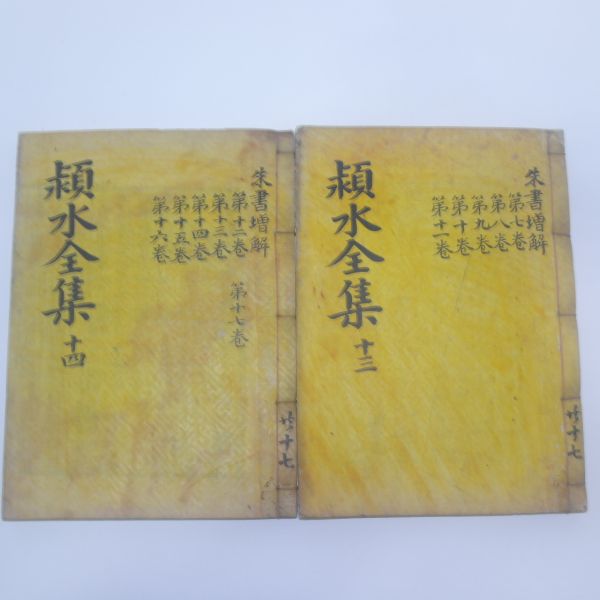 朱書增解
第七卷
第八卷
第九卷
第十卷
第十一卷
頴水全集 十三
共十七
朱書增解
第十二卷 第十七卷
第十三卷
第十四卷
第十五卷
第十六卷
頴水全集 十四
共十七